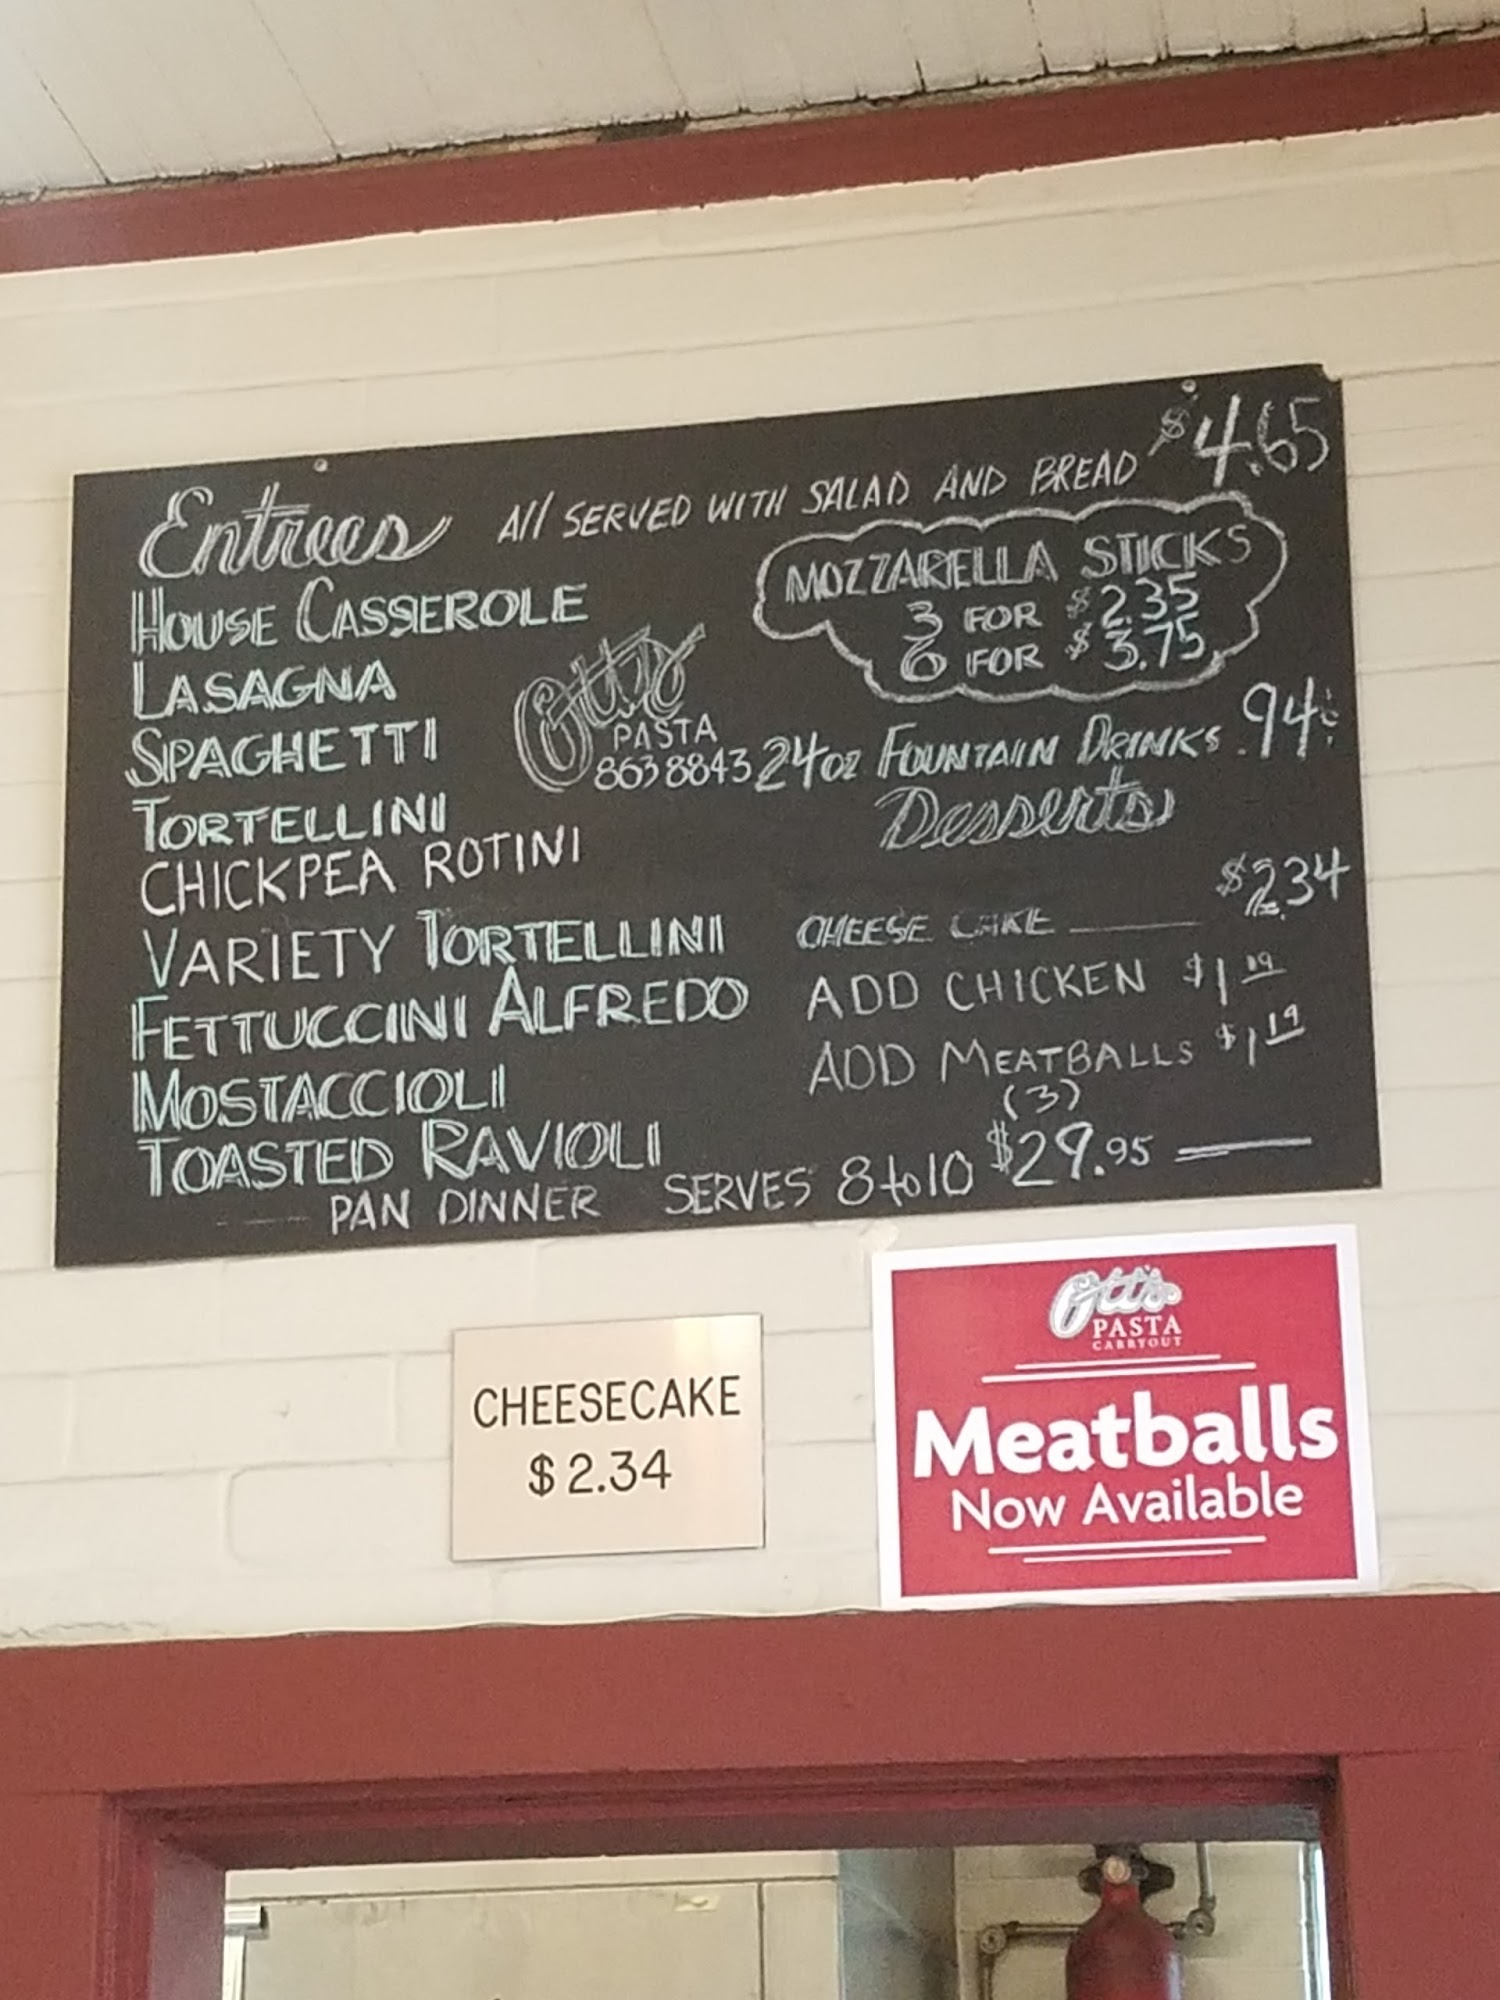 Entrees All SERVED WITH SALAD AND BREAD $4.65
HOUSE CASSEROLE
LASAGNA
SPAGHETTI
TORTELLINI
CHICKPEA ROTINI
VARIETY TORTELLINI
FETTUCCINI ALFREDO
MOSTACCIOLI
TOASTED RAVIOLI
Ott's
PASTA
863 8843
MOZZARELLA STICKS
3 FOR $2.35
6 FOR $3.75
24oz FOUNTAIN DRINKS .94¢
Desserts
CHEESE CAKE $2.34
ADD CHICKEN $1.19
ADD MEATBALLS $1.19
(3)
PAN DINNER SERVES 8 to 10 $29.95
CHEESECAKE
$2.34
Ott's
PASTA
CARRYOUT
Meatballs
Now Available